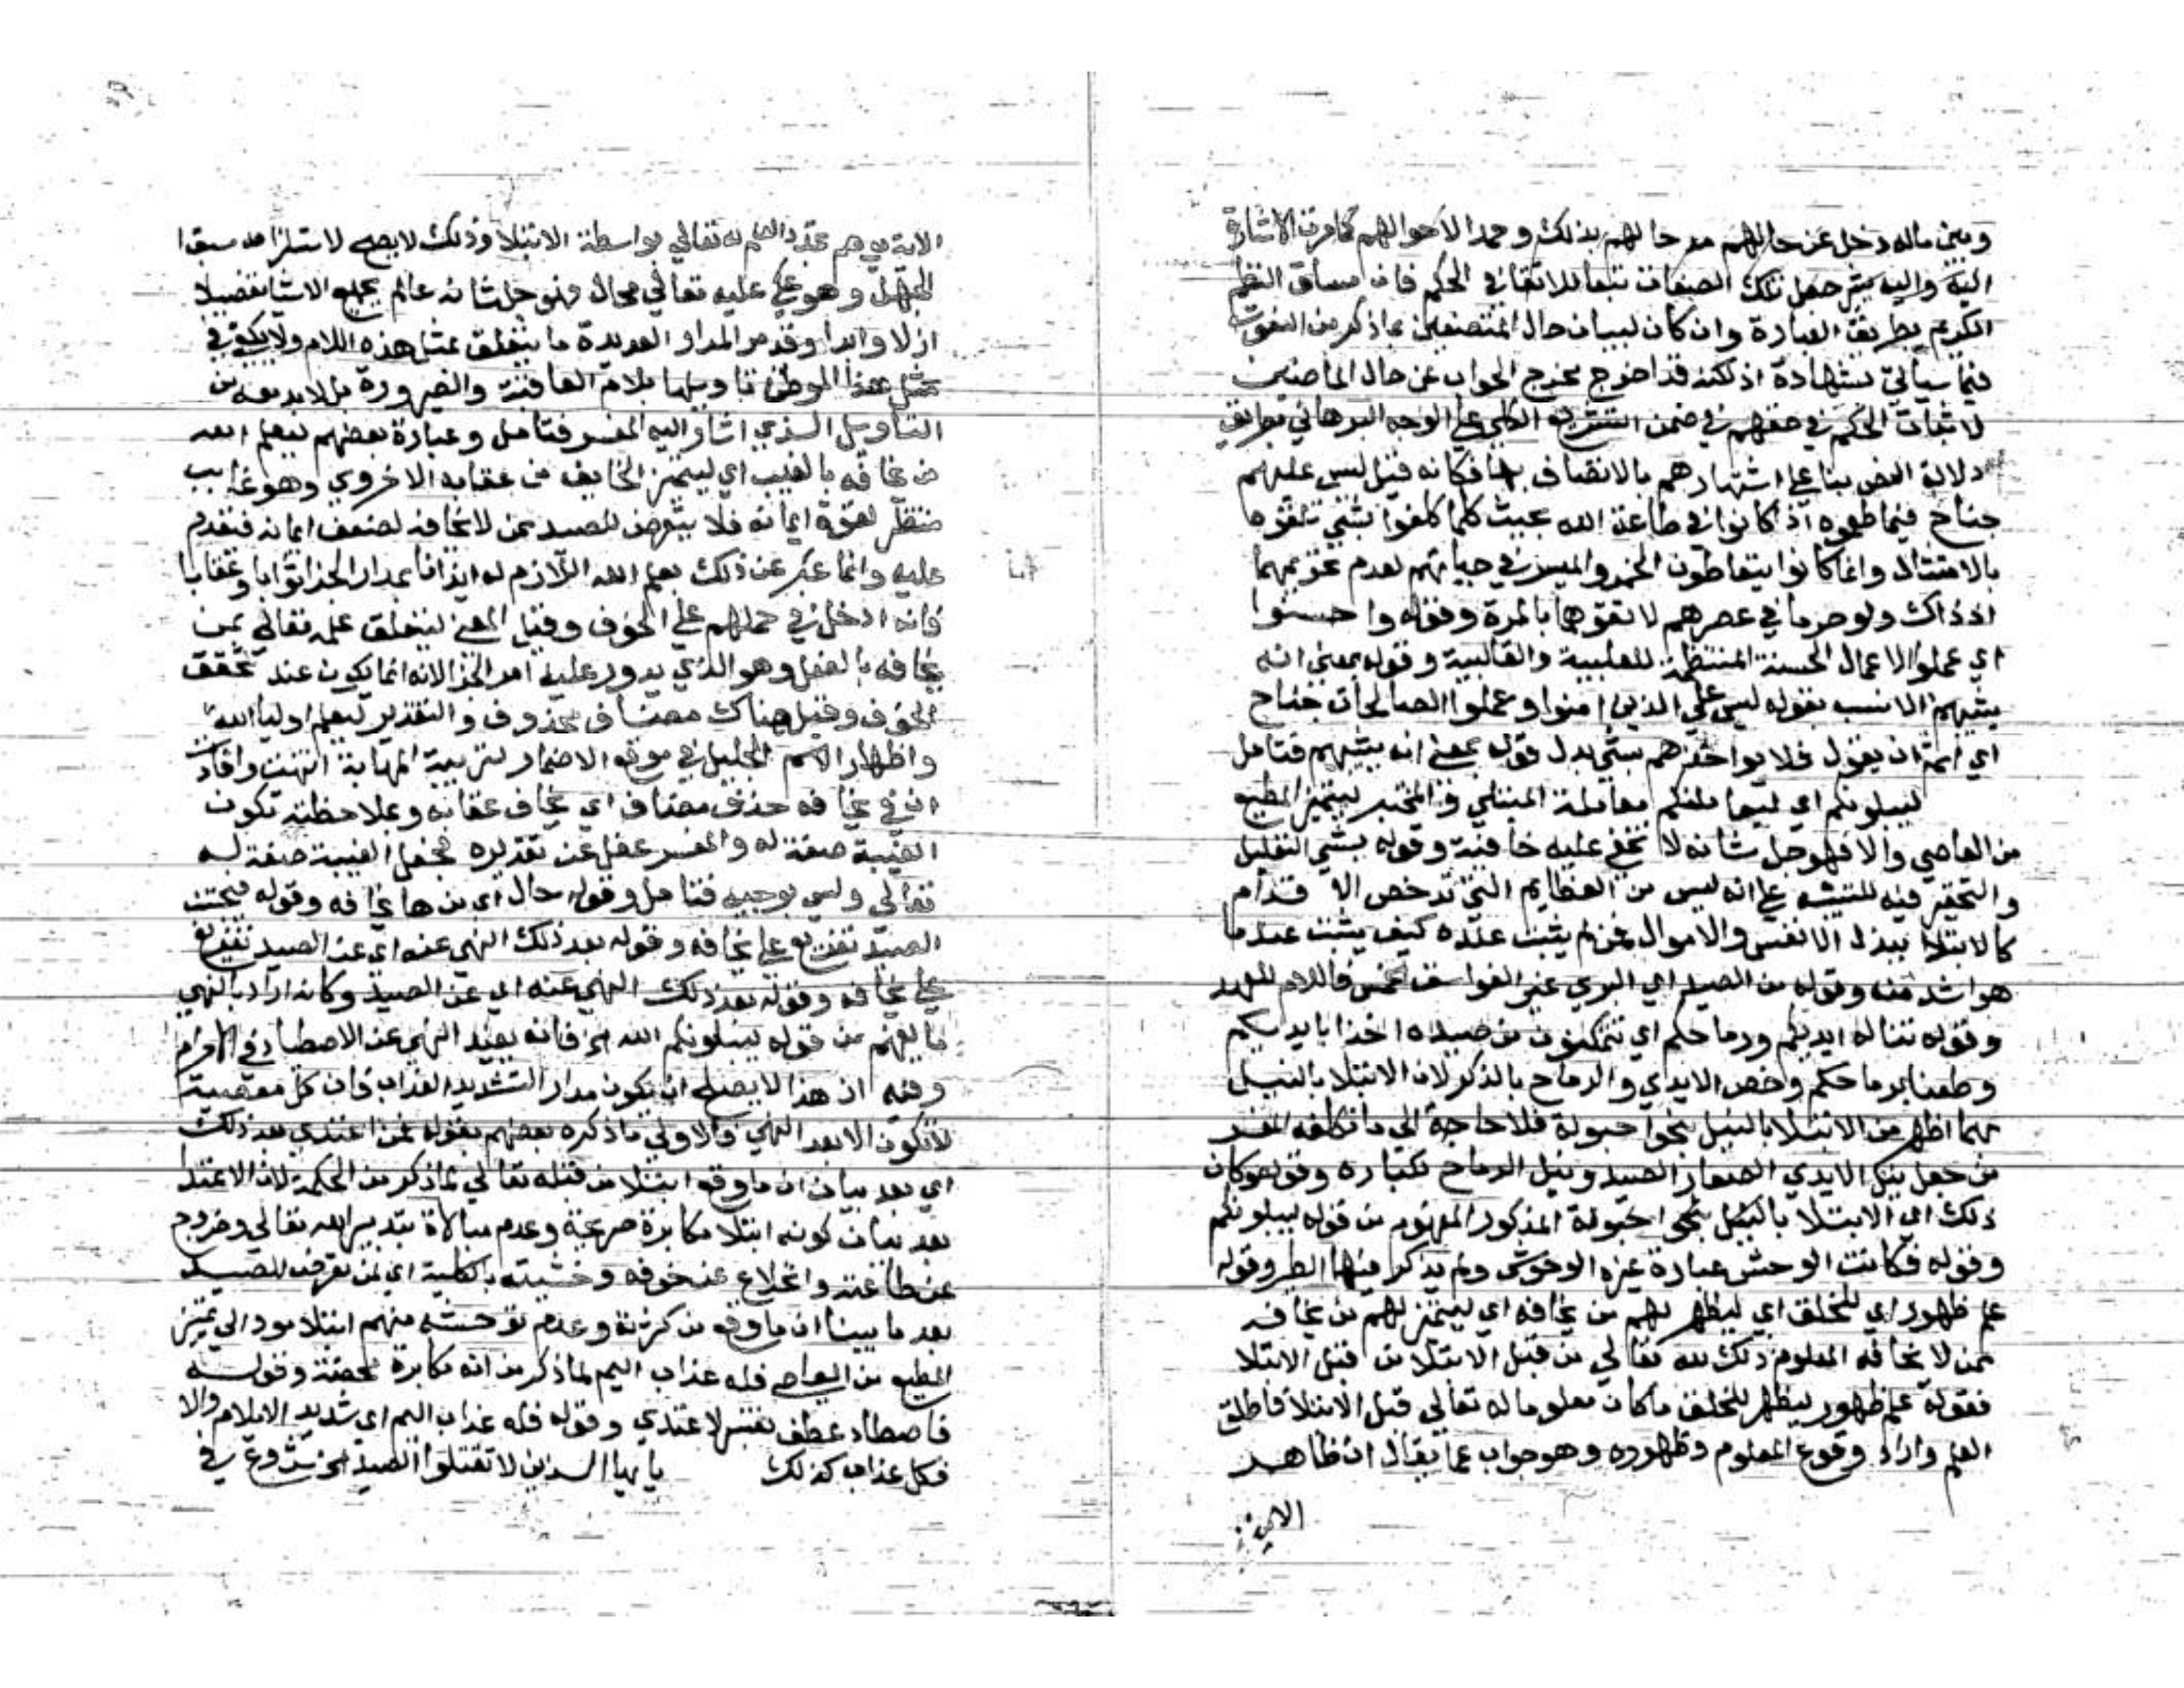 وبين ماله دخل عن حالهم مدحا لهم بذلك وحمدا لاحوالهم كما مرت الاشارة
اليه واليه يشير جعل تلك الصفات تبعا للاتقا في الحكم فان مساق النظم
الكريم بطريق العبارة وان كان لبيان حال المتصفين بما ذكر من النعوت
فيما سيأتي بشهادة اذ لكنه قد اخرج مخرج الجواب عن حال الماضين
لاثبات الحكم في حقهم في ضمن التشريع الكلي على الوجه البرهاني بطريق
دلالة النص بنا على اشتهارهم بالاتصاف بها فكانه قيل ليس عليهم
جناح فيما طعموه اذ كانوا في طاعة الله بحيث كلما كلفوا بشي تلقوه
بالامتثال وانما كانوا يتعاطون الخمر والميسر في حياتهم لعدم تحريمهما
اذ ذاك ولو حرما في عصرهم لاتقوهما بالمرة وقوله واحسنوا
اي عملوا الاعمال الحسنة المنتظمة للقلبية والقالبية وقوله بمعنى انه
يثيبهم الانسب بقوله ليس على الذين امنوا وعملوا الصالحات جناح
اي اثم ان يقول فلا يواخذهم بشي بدل قوله بمعنى انه يثيبهم فتامل
ليبلونكم اي ليعاملنكم معاملة المبتلي والمختبر ليتميز المطيع
من العاصي والا فهو جل شانه لا تخفى عليه خافية وقوله بشي التقليل
والتحقير فيه للتنبيه على انه ليس من العظايم التي تدحض الاقدام
كالابتلا ببذل الانفس والاموال فمن لم يثبت عنده كيف يثبت عند ما
هو اشد منه وقوله من الصيد اي البري غير الفواسق الخمس فاللام للعهد
وقوله تناله ايديكم ورماحكم اي تتمكنون من صيده اخذا بايديكم
وطعنا برماحكم وخص الايدي والرماح بالذكر لان الابتلا بالنيل
بهما اظهر من الابتلا بالنيل بنحو احبولة فلا حاجة الى ما تكلفه المفسر
من جعل نيل الايدي لصغار الصيد ونيل الرماح لكباره وقوله وكان
ذلك اي الابتلا بالنيل بنحو احبولة المذكور المفهوم من قوله ليبلونكم
وقوله فكانت الوحش عبارة غيره الوحوش ولم يذكر فيها الطير وقوله
علم ظهور اي للخلق اي ليظهر لهم من يخافه اي ليتميز لهم من يخافه
ممن لا يخافه المعلوم ذلك لله تعالى من قبل الابتلا من قبل الابتلا
فقوله علم ظهور ليظهر للخلق ما كان معلوما له تعالى قبل الابتلا فاطلق
العلم واراد وقوع المعلوم وظهوره وهو جواب عما يقال ان ظاهر
الاية
الاية يوهم تجدد العلم له تعالى بواسطة الابتلا وذلك لا يصح لاستلزامه سبق
الجهل وهو عليه تعالى محال فهو جل شانه عالم بجميع الاشيا تفصيلا
ازلا وابدا وقد مر المرار العديدة ما يتعلق بمثل هذه اللام ولا يكفي في
مثل هذا الموطن تاويلها بلام العاقبة والصيرورة بل لابد معه من
التاويل الذي اشار اليه المفسر فتامل وعبارة بعضهم ليعلم الله
من يخافه بالغيب اي ليتميز الخايف من عقابه الاخروي وهو غايب
منتظر لقوة ايمانه فلا يتعرض للصيد ممن لا يخافه لضعف ايمانه فيقدم
عليه وانما عبر عن ذلك بعلم الله اللازم له ايذانا بمدار الجزا ثوابا وعقابا
فانه ادخل في حملهم على الخوف وقيل المعنى ليتعلق علمه تعالى بمن
يخافه بالفعل وهو الذي يدور عليه امر الجزا لانه انما يكون عند تحقق
الخوف وقيل هناك مضاف محذوف والتقدير ليعلم اوليا الله
واظهار الاسم الجليل في موقع الاضمار لتربية المهابة انتهت وافاد
ان في يخافه حذف مضاف اي يخاف عقابه وبملاحظته تكون
الغيبة صفة له والمفسر غفل عن تقديره فجعل الغيبة صفة له
تعالى وليس بوجيه فتامل وقوله حال اي من ها يخافه وقوله فيجتنب
الصيد تفريع على يخافه وقوله بعد ذلك النهي عنه اي عن الصيد تفريع
على يخافه وقوله بعد ذلك النهي عنه اي عن الصيد وكانه اراد بالنهي
ما يفهم من قوله ليبلونكم الله الخ فانه يفيد النهي عن الاصطياد في الاحرام
وفيه ان هذا لا يصلح ان يكون مدار التشديد العذاب فان كل معصية
لا تكون الا بعد النهي والاولى ما ذكره بعضهم بقوله فمن اعتدى بعد ذلك
اي بعد بيان ان ما وقع ابتلا من قبله تعالى لما ذكر من الحكمة لان الاعتدا
بعد بيان كونه ابتلا مكابرة صريحة وعدم مبالاة بتدبير الله تعالى وخروج
عن طاعته وانخلاع عن خوفه وخشيته بالكلية اي فمن تعرض للصيد
بعد ما بينا ان ما وقع من كثرته وعدم توحشه منهم ابتلا مود الى تمييز
المطيع من العاصي فله عذاب اليم لما ذكر من انه مكابرة محضة وقوله
فاصطاد عطف تفسير لاعتدى وقوله فله عذاب اليم اي شديد الايلام والا
فكل عذاب كذلك يا ايها الذين لا تقتلوا الصيد الخ شروع في